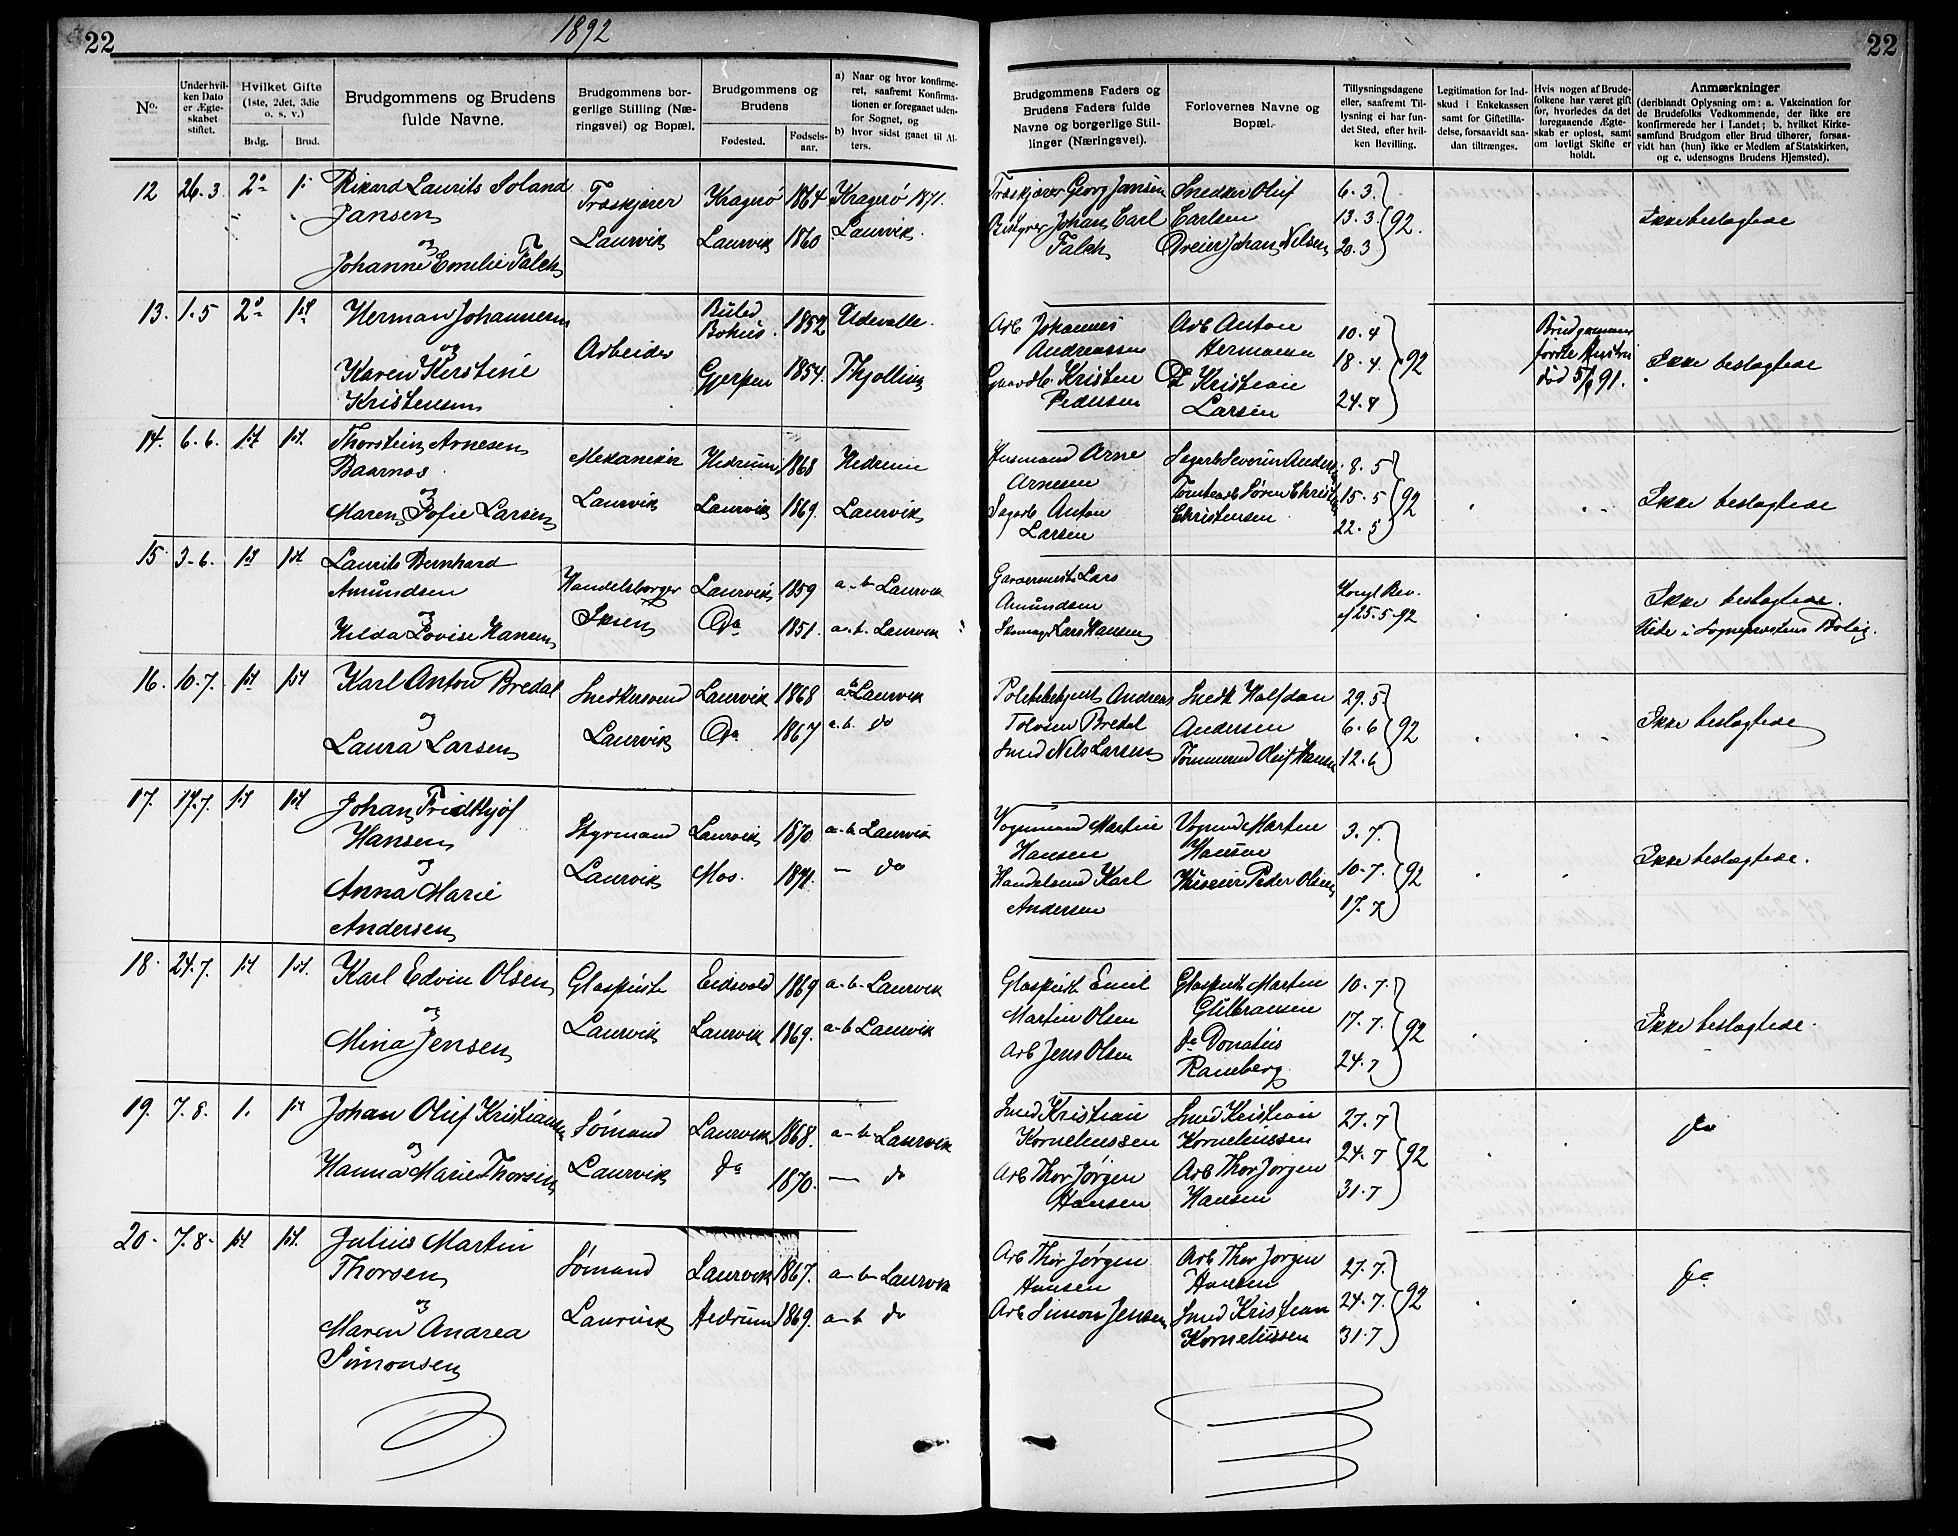 22
1892
22
No.
Under hvilken Dato er Ægteskabet stiftet.
Hvilket Gifte (1ste, 2det, 3die o. s. v.)
Brdg.
Brud.
Brudgommens og Brudens fulde Navne.
Brudgommens borgerlige Stilling (Næringsvei) og Bopæl.
Brudgommens og Brudens
Fødested.
Fødselsaar.
a) Naar og hvor konfirmeret, saafremt Konfirmationen er foregaaet udenfor Sognet, og
b) hvor sidst gaaet til Alters.
Brudgommens Faders og Brudens Faders fulde Navne og borgerlige Stillinger (Næringsvei).
Forlovernes Navne og Bopæl.
Tillysningsdagene eller, saafremt Tillysning ei har fundet Sted, efter hvilken Bevilling.
Legitimation for Indskud i Enkekassen samt for Giftetilladelse, forsaavidt saadan tiltrænges.
Hvis nogen af Brudefolkene har været gift før, hvorledes da det foregaaende Ægteskab er opløst, samt om lovligt Skifte er holdt.
Anmærkninger
(deriblandt Oplysning om: a. Vakcination for de Brudefolks Vedkommende, der ikke ere konfirmerede her i Landet; b. hvilket Kirkesamfund Brudgom eller Brud tilhører, forsaavidt han (hun) ikke er Medlem af Statskirken, og c. udensogns Brudens Hjemsted).
12 26.3. 2° 1.
Rikard Laurits Soland
Jansen
og
Johanne Emilie Falck
Træskjærer
Laurvik
Kragerø 1864 Kragerø 1871.
Laurvik 1860 Laurvik.
Træskjærer Georg Jansen
Johan Carl
Falck
Snedker Oluf
Carlsen
Dreier Johan Nilsen
6.3.
13.3 92.
20.3
Ikke beslægtede
13. 1.5 2° 1st
Herman Johannesen
og
Karen Kirstine
Kristensen
Arbeider
Bohus. 1852 Udevalle.
Gjerpen 1854. Thjølling
Arb Johannes
Andreassen
Gaardb. Kristen
Pedersen
Arb Anton
Hermansen
Do Kristian
Larsen
10.4
18.4. 92
24.4
Brudgommens
første Hustru
død 5/8 91.
Ikke beslægtede
14. 6.6. 1st 1st.
Thorstein Arnesen
Baarnæs
og
Maren Sofie Larsen
Mekaniker
Laurvik
Hedrum 1868 Hedrum
Laurvik 1869. Laurvik
Husmand Arne
Arnesen
Sagarb Anton
Larsen
Sagarb Severin Anders
Tomtearb Søren Christ
Christensen
8.5
15.5 92
22.5
Ikke beslægtede
15. 3.6. 1st 1st
Laurits Bernhard
Amundsen
og
Hilda Lovise Hansen
Handelsborger
Skien
Laurvik 1859 a-b Laurvik
Do 1851. a-b. Laurvik
Garvermest. Lars
Amundsen
Skomager Lars Hansen
Kongl Bev.
af 25.5-92
Ikke beslægtede.
Viede i Sogneprestens Bolig.
16. 10.7. 1st 1st
Karl Anton Bredal
og
Laura Larsen
Snedkersvend
Laurvik
Laurvik 1868 a-b Laurvik
Do 1867 a-b. do
Politibetjent Andreas
Tolvsen Bredal
Smed Nils Larsen
Snedk Halfdan
Andersen
Tømmermd Oluf Hansen
29.5
6.6 92
12.6
Ikke beslægtede
17. 17.7. 1st 1st
Johan Fridthjof
Hansen
og
Anna Marie
Andersen
Styrmand
Laurvik
Laurvik 1870. a-b Laurvik
Mos. 1871. — do
Vognmand Martin
Hansen
Handelsmd Karl
Andersen
Vognmd Martin
Hansen
Peder Olsen
3.7.
10.7. 92
17.7
Ikke beslægtede.
18. 24.7. 1st 1st.
Karl Edvin Olsen
og
Mina Jensen
Glaspuster
Laurvik
Eidsvold 1869 a-b Laurvik
Laurvik 1869. a-b Laurvik
Glaspust. Emil
Martin Olsen
Arb Jens Olsen
Glaspust. Martin
Gulbransen
do Donatius
Ramberg
10.7.
17.7. 92
24.7
Ikke beslægtede.
19. 7.8. 1. 1st
Johan Oluf Kristiansen
og
Hanna Marie Thorsen
Sømand
Laurvik
Laurvik 1868. a-b Laurvik
do 1870. — do
Smed Kristian
Korneliussen
Arb Thor Jørgen
Hansen
Smed Kristian
Korneliussen
Arb Thor Jørgen
Hansen
27.7
24.7 92
31.7
do
20. 7.8. 1st 1st.
Julius Martin
Thorsen
og
Maren Andrea
Simonsen
Sømand
Laurvik
Laurvik 1867. a-b Laurvik
Hedrum 1869. a-b do
Arb Thor Jørgen
Hansen
Arb Simon Jensen
Arb Thor Jørgen
Hansen
Smed Kristian
Korneliussen
27.7.
24.7. 92
31.7
do